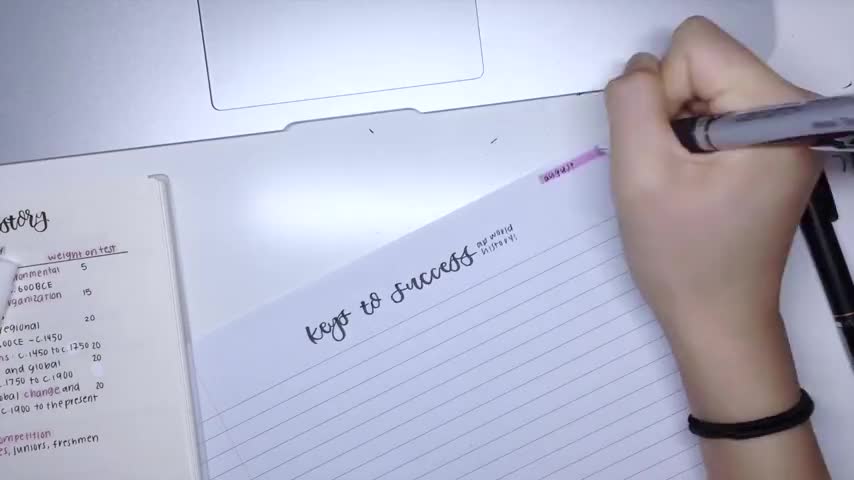 story
weight on test
onmental 5
.600BCE
rganization 15
regional 20
00CE - c.1450
ns: c.1450 to c.1750 20
and global 20
c.1750 to c.1900
obal change and 20
c.1900 to the present
ompetition
es, juniors, freshmen
august
keys to success
ap world
history!